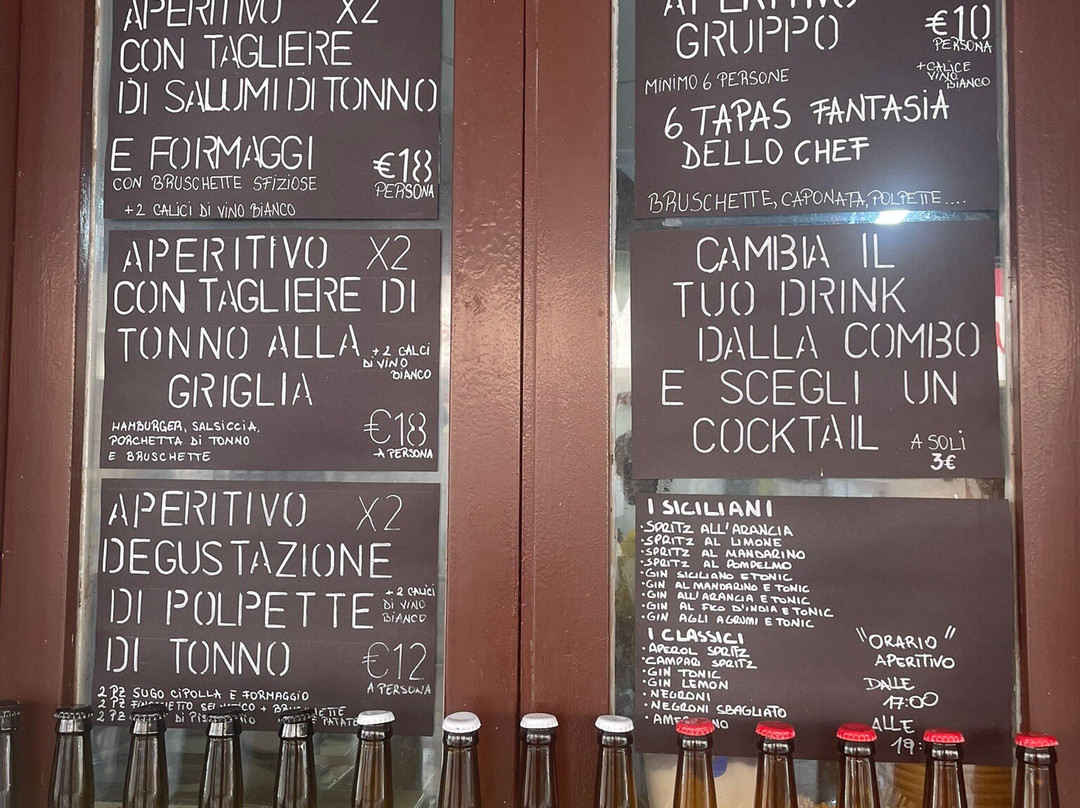 APERITIVO X2
CON TAGLIERE
DI SALUMI DI TONNO
E FORMAGGI
CON BRUSCHETTE SFIZIOSE
€18
PERSONA
+ 2 CALICI DI VINO BIANCO
APERITIVO X2
CON TAGLIERE DI
TONNO ALLA
+ 2 CALCI
DI VINO
BIANCO
GRIGLIA
HAMBURGER, SALSICCIA,
PORCHETTA DI TONNO
E BRUSCHETTE
€18
A PERSONA
APERITIVO X2
DEGUSTAZIONE
DI POLPETTE
+ 2 CALICI
DI VINO
BIANCO
DI TONNO
€12
A PERSONA
2 PZ SUGO CIPOLLA E FORMAGGIO
2 PZ
2 PZ
APERITIVO
GRUPPO
€10
PERSONA
MINIMO 6 PERSONE
+CALICE
VINO
BIANCO
6 TAPAS FANTASIA
DELLO CHEF
BRUSCHETTE, CAPONATA, POLPETTE....
CAMBIA IL
TUO DRINK
DALLA COMBO
E SCEGLI UN
COCKTAIL
A SOLI
3€
I SICILIANI
•SPRITZ ALL'ARANCIA
•SPRITZ AL LIMONE
•SPRITZ AL MANDARINO
•SPRITZ AL POMPELMO
•GIN SICILIANO E TONIC
•GIN AL MANDARINO E TONIC
•GIN ALL'ARANCIA E TONIC
•GIN AL FICO D'INDIA E TONIC
•GIN AGLI AGRUMI E TONIC
I CLASSICI
•APEROL SPRITZ
•CAMPARI SPRITZ
•GIN TONIC
•GIN LEMON
•NEGRONI
•NEGRONI SBAGLIATO
"ORARIO"
APERITIVO
DALLE
17:00
ALLE